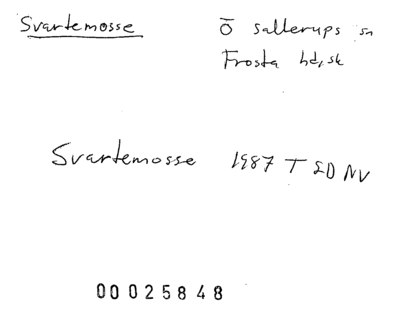 Svartemosse
Ö Sallerups sn
Frosta hd, sk
Svartemosse 1987 T ED NV
00025848